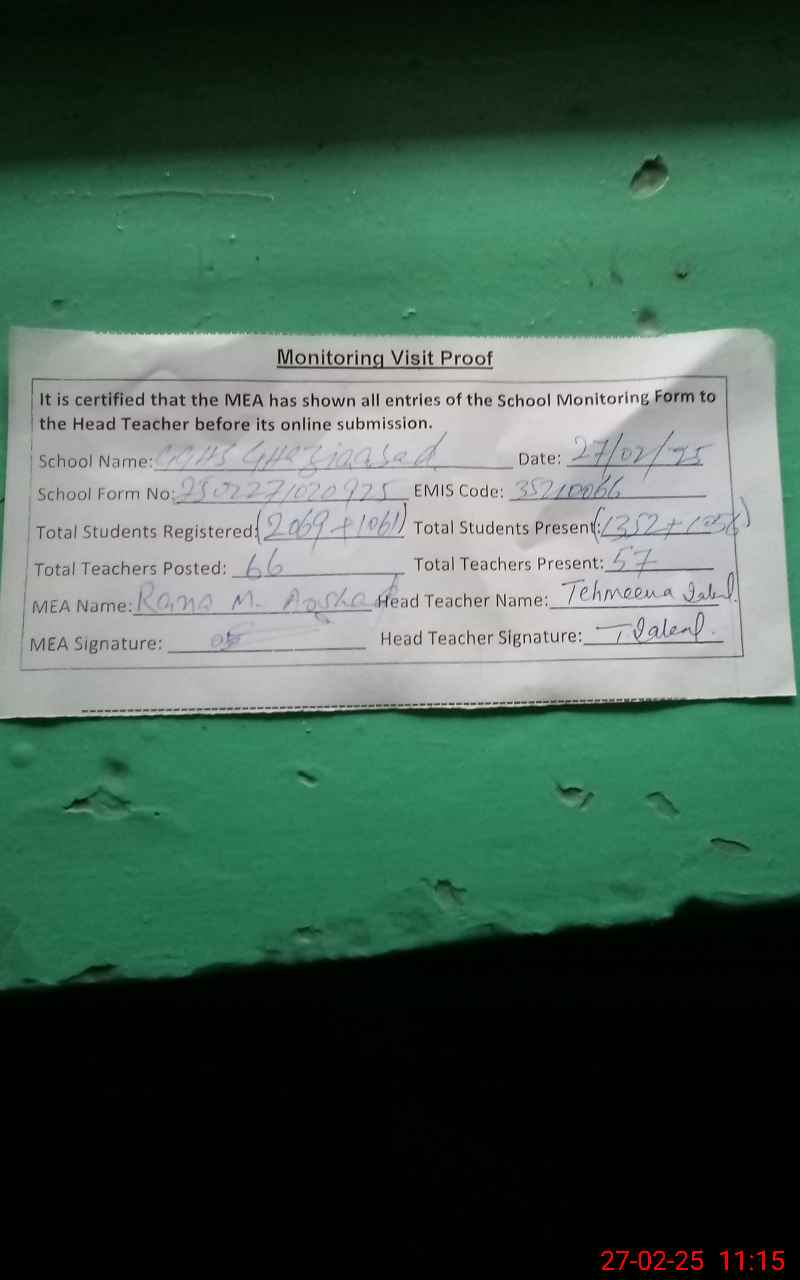 Monitoring Visit Proof
It is certified that the MEA has shown all entries of the School Monitoring Form to
the Head Teacher before its online submission.
School Name: GGHS Ghaziabad Date: 27/02/25
School Form No: 2502271020925 EMIS Code: 35210066
Total Students Registered: (2069+1061) Total Students Present: (1352+1056)
Total Teachers Posted: 66 Total Teachers Present: 57
MEA Name: Rana M. Arshad Head Teacher Name: Tehmeena
MEA Signature: Head Teacher Signature:
27-02-25 11:15